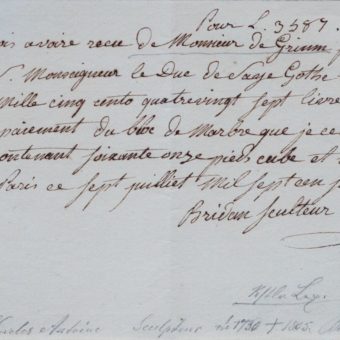 Pour L 3587.
ois avoire recu de Monsieur de Grimm
Monseigneur le Duc de Saxe Gothe
Mille cinq cento quatrevingt sept livre
paiement du bloc de Marbre que je ce
ontenant soixante onze pieds cube et
Paris ce sept juilliet Mil sept cen
Bridan sculteur
Sculpteur de 1730 + 1805.